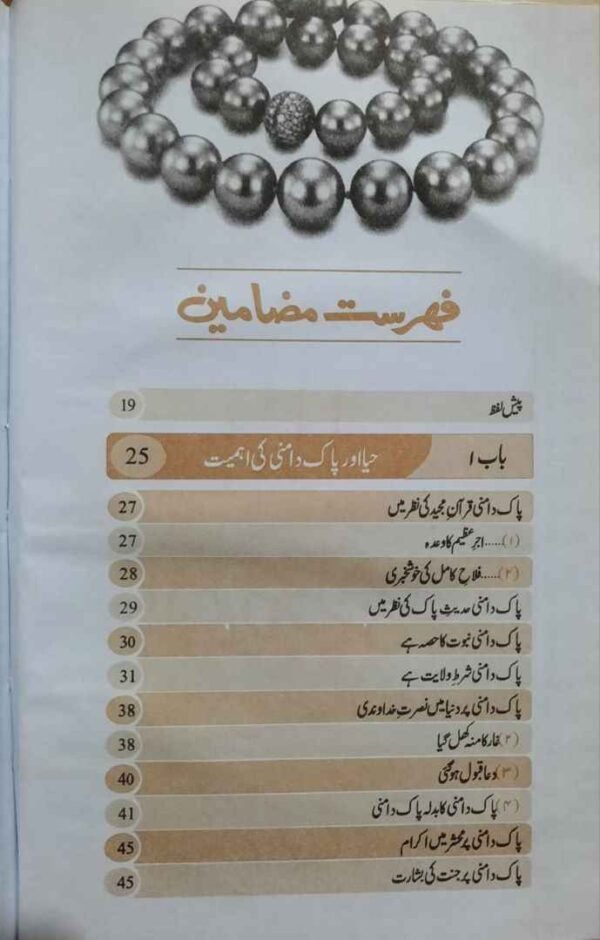 فہرست مضامین
پیش لفظ 19
باب ۱ حیا اور پاک دامنی کی اہمیت 25
پاک دامنی قرآن مجید کی نظر میں 27
(۱)..... اجر عظیم کا وعدہ 27
(۲)..... فلاح کامل کی خوشخبری 28
پاک دامنی حدیث پاک کی نظر میں 29
پاک دامنی نبوت کا حصہ ہے 30
پاک دامنی شرط ولایت ہے 31
پاک دامنی پر دنیا میں نصرت خداوندی 38
(۲) غار کا منہ کھل گیا 38
(۳) دعا قبول ہو گئی 40
(۴) پاک دامنی کا بدلہ پاک دامنی 41
پاک دامنی پر محشر میں اکرام 45
پاک دامنی پر جنت کی بشارت 45